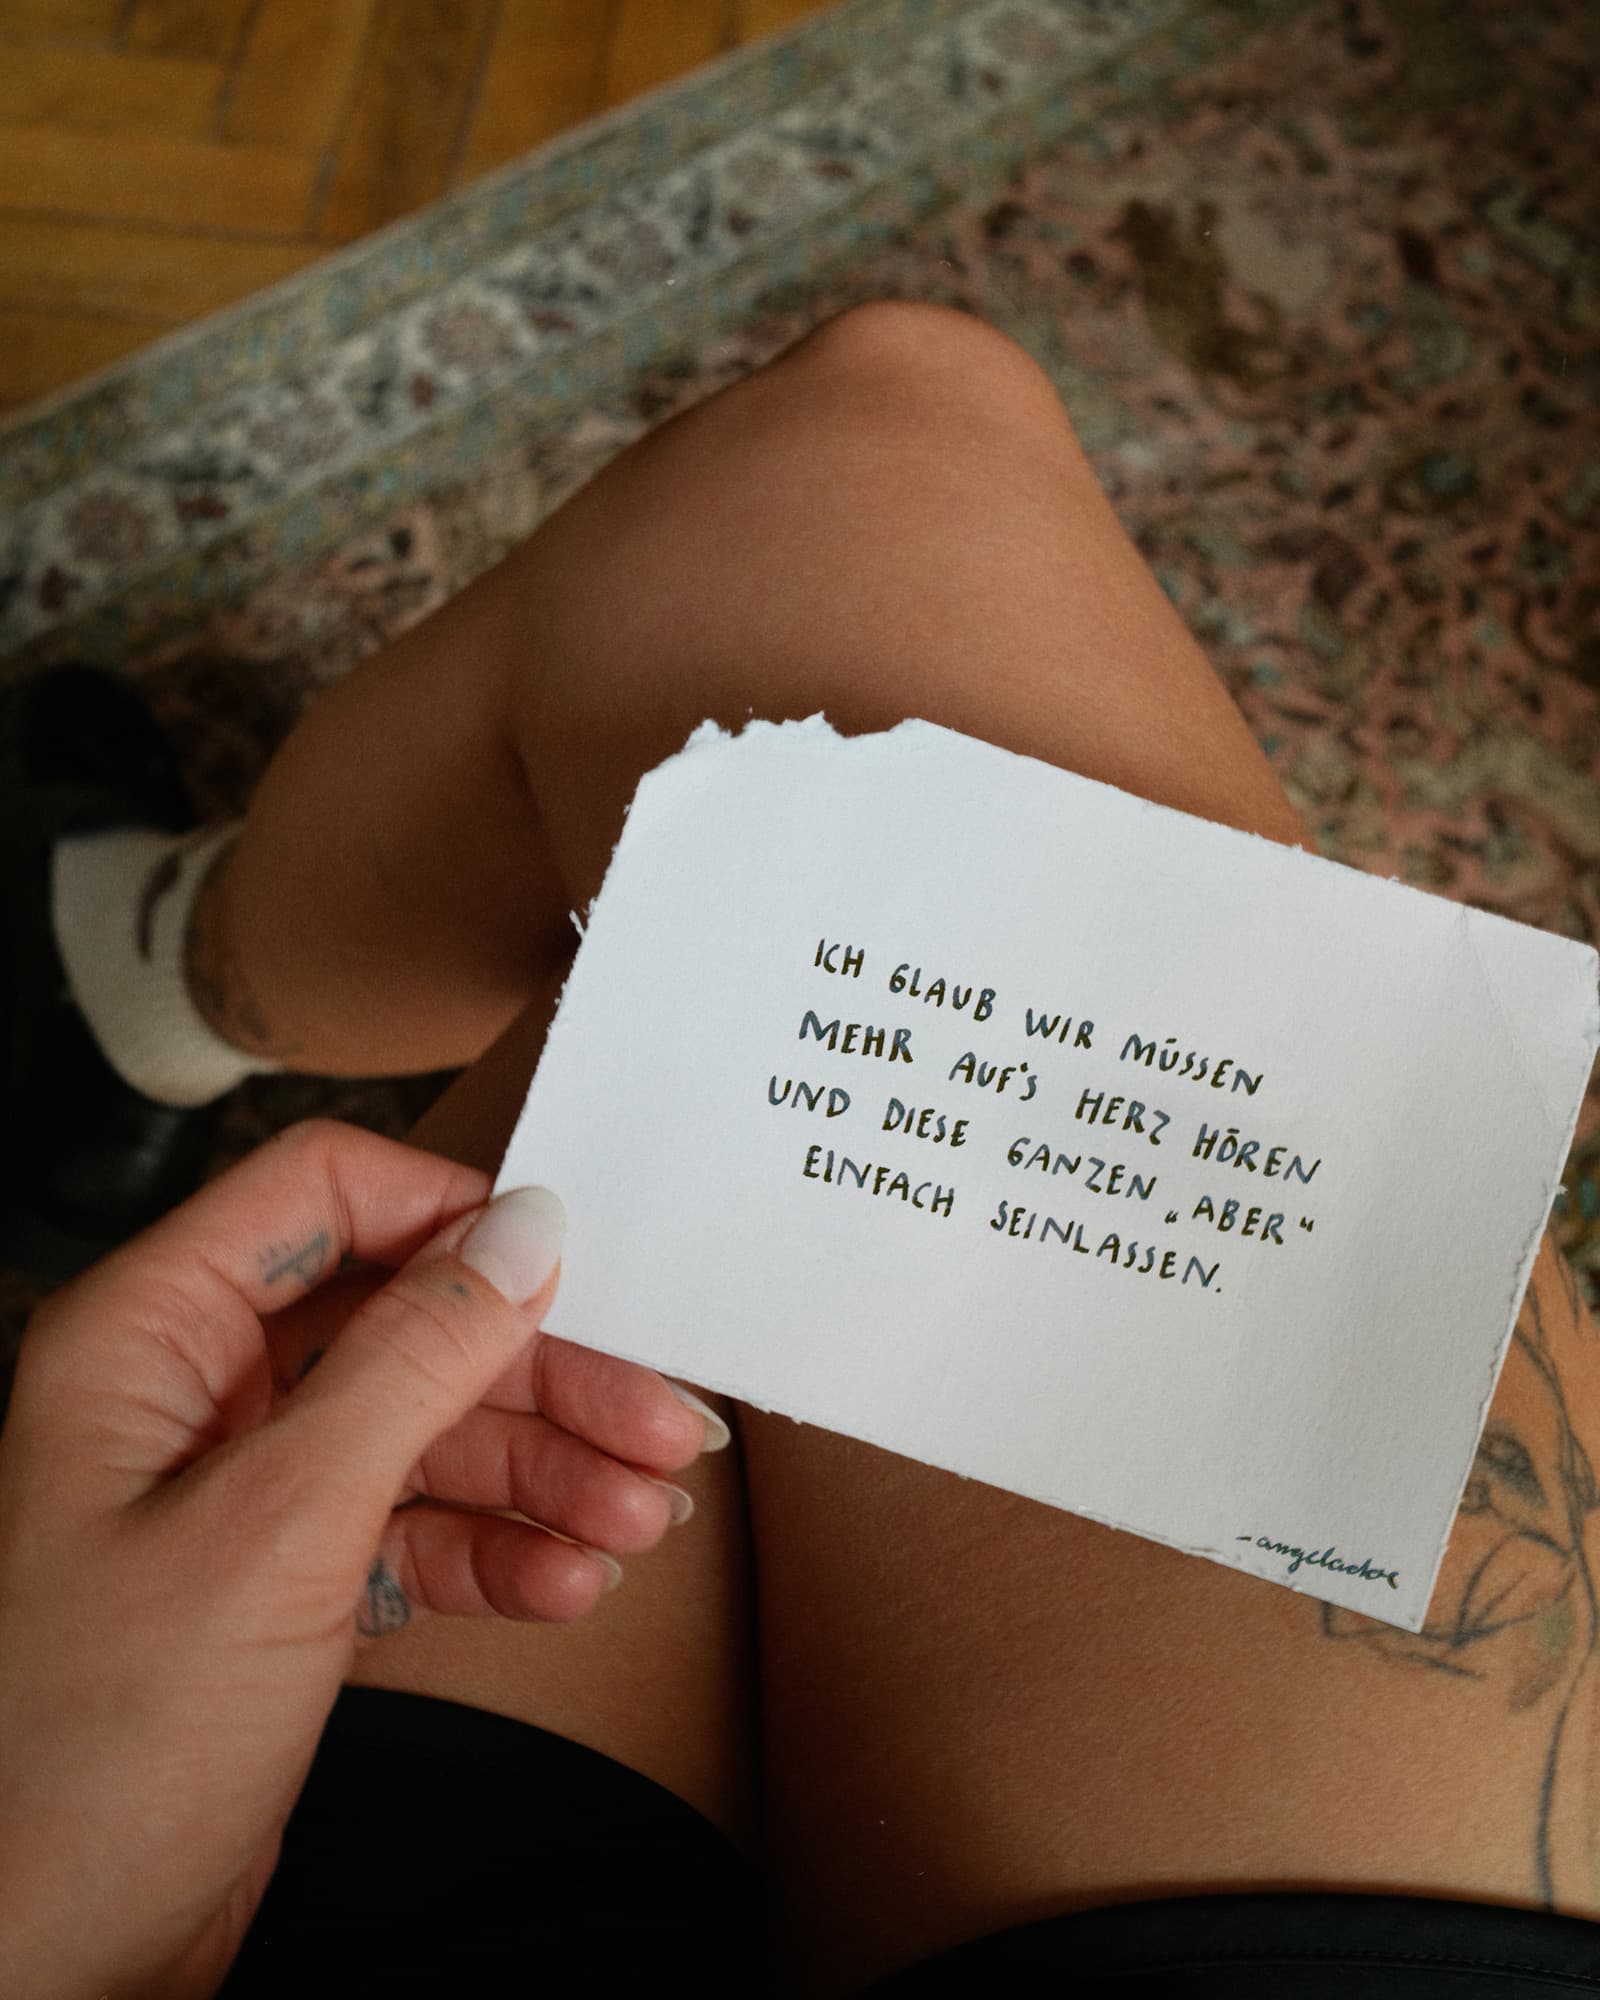 ICH GLAUB WIR MÜSSEN
MEHR AUF'S HERZ HÖREN
UND DIESE GANZEN „ABER“
EINFACH SEINLASSEN.
- angeladoe